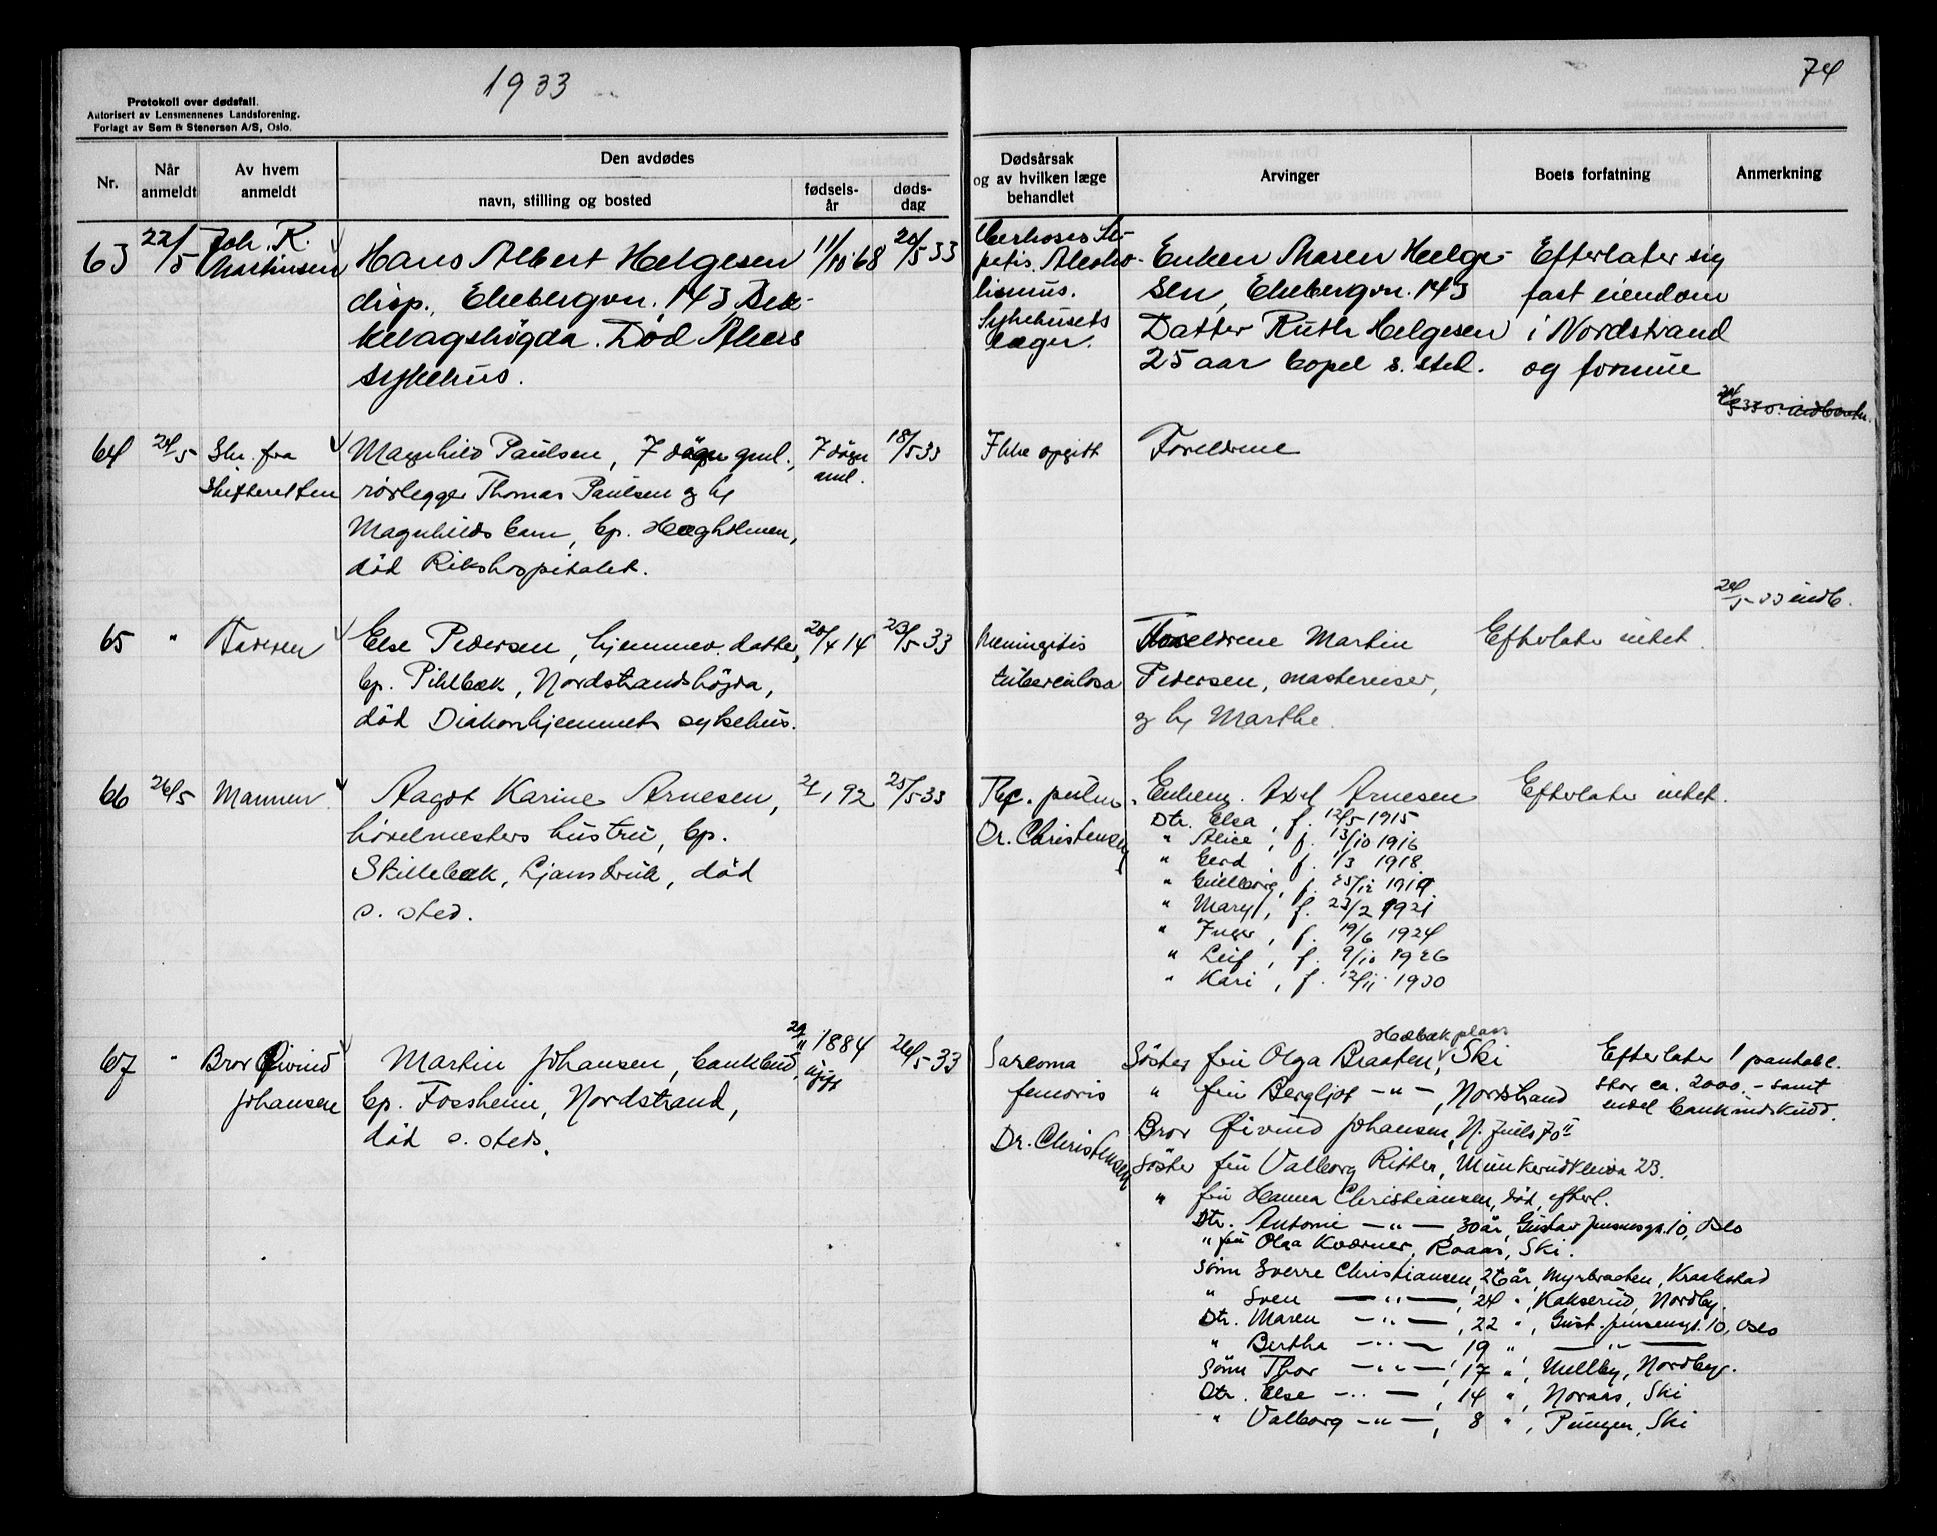 1933
74
Protokoll over dødsfall.
Autorisert av Lensmennenes Landsforening.
Forlagt av Sem & Stenersen A/S, Oslo.
Nr.
Når anmeldt
Av hvem anmeldt
Den avdødes
navn, stilling og bosted
fødsels-år
døds-dag
Dødsårsak
og av hvilken læge
behandlet
Arvinger
Boets forfatning
Anmerkning
63 22/5 Joh. R. Martinsen
Hans Albert Helgesen 11/10 68 20/5 33
disp., Ekebergvn. 143 Bek-
kelagshögda. Död Akers
sykehus.
Alcoho-
lismus.
Sykehusets
læger.
Enken Maren Helge-
sen, Ekebergvn. 143
Datter Ruth Helgesen
25 aar bopel s. sted.
Efterlater sig
fast eiendom
i Nordstrand
og formue
64 24/5 Skr. fra Skifteretten
Magnhild Paulsen, 7 døgn gml., 7 døgn gml. 18/5 33
rørlegger Thomas Paulsen og h/
Magnhilds barn, bp. Hægholmen,
död Rikshospitalet.
Ikke opgitt
Foreldrene
24/5-33 indb.
65 " Faderen
Else Pedersen, hjemmev. datter, 20/4 14 23/5-33
bp. Pihlbæk, Nordstrandshögda,
död Diakonhjemmets sykehus.
Meningitis
tuberculosa
Foreldrene Martin
Pedersen, maskeriser,
og h/ Marthe.
Efterlater intet.
66 26/5 Mannen
Aagot Karine Arnesen, 2/1 92 25/5-33
hövelmesters hustru, bp.
Skillebæk, Ljansbruk, död
s. sted.
Tbc. pulm.
Dr. Christensen
Enkem. Axel Arnesen
Dtr. Elsa, f. 12/5 1915
" Alice, f. 13/10 1916
" Gerd, f. 1/3 1918
" Gullborg, f. 25/12 1919
" Mary, f. 23/2 1921
" Inger, f. 19/6 1924
" Leif, f. 9/10 1926
" Kari, f. 12/11 1930
Efterlater intet.
67 " Bror Øivind Johansen
Martin Johansen, bankbud, 29/11 1884 ugift 26/5-33
bp. Fossheim, Nordstrand,
död s. steds.
Sarcoma
femoris
Dr. Christensen
Hæbæk plass
Söster fru Olga Braaten, Ski
" fru Bergljot —"—, Nordstrand
Bror Øivind Johansen, N. Juels 70 II
Söster fru Valborg Ritter, Munkerudkleiva 23.
" fru Hanna Christiansen, död, efterl.
Dtr. Antonie —"—, 30 år, Gustav Jensensgt. 10, Oslo
" fru Olga Kværner, Raaas, Ski.
Sönn Sverre Christiansen, 26 år, Myrbraaten, Kraakstad
" Sven —"—, 24 ", Kakserud, Nordby.
Dtr. Maren —"—, 22 ", Gust. Jensensgt. 10, Oslo
" Bertha —"—, 19 " —"—
Sönn Thor —"—, 17 ", Mellby, Nordby.
Dtr. Else —"—, 14 ", Noraas, Ski
" Valborg —"—, 8 ", Pungen, Ski
Efterlater 1 pantobl.
stor ca. 2000.- samt
endel bankindskudd.